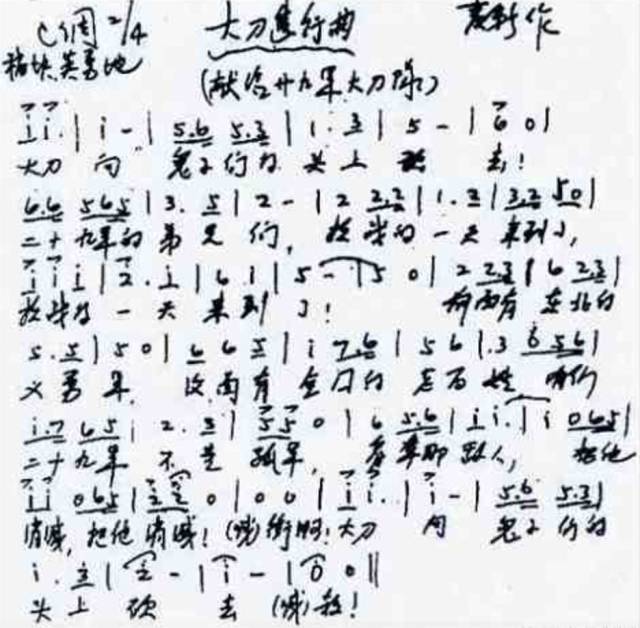 C调 2/4 大刀進行曲 麦新作
稍快英勇地 (献给廿九军大刀队)
i i. | i - | 5.6 5.3 | 1. 3 | 5 - | 6 0 |
大刀 向 鬼子们的 头上 砍 去!
6.6 565 | 3. 5 | 2 - | 2 2.3 | 1. 2 | 3.2 50 |
二十九军的弟兄们, 抗战的一天来到了,
i i i | 2. i | 6 1 | 5 - | 5 0 | 2 2.3 | 6 2.3 |
抗战的一天来到了! 前面有东北的
5. 5 | 5 0 | 6 6 5 | i 7.6 | 5 6 | .3 0 56 |
义勇军, 后面有全国的老百姓 咱们
i.7 65 | 2. 3 | 55 0 | 6 5.6 | i i. | i 065 |
二十九军不是孤军, 看準那敌人, 把他
i i 065 | 2 2 0 | 0 0 | i i. | i - | 5.6 5.3 |
消滅, 把他消滅! (喊)衝啊! 大刀 向 鬼子们的
i. 3 | 2 - | i - | 0 0 ||
头上砍 去 (喊)殺!